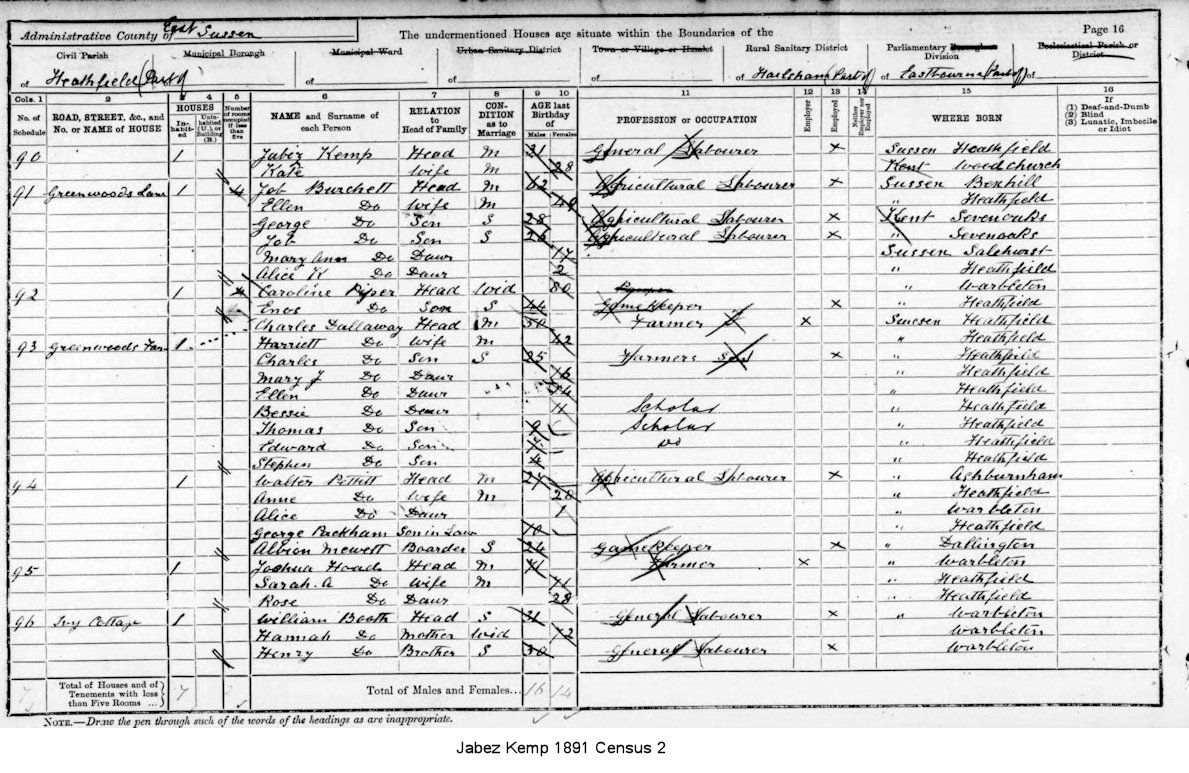 Administrative County of East Sussex
The undermentioned Houses are situate within the Boundaries of the
Page 16
Civil Parish of Heathfield (Part of)
Municipal Borough of
Municipal Ward of
Urban Sanitary District of
Town or Village or Hamlet of
Rural Sanitary District of Hailsham (Part of)
Parliamentary Borough or Division of Eastbourne (Part of)
Ecclesiastical Parish or District of
Cols. 1 2 3 4 5 6 7 8 9 10 11 12 13 14 15 16
No. of Schedule
ROAD, STREET, &c., and No. or NAME of HOUSE
HOUSES
Inhabited
Uninhabited (U.), or Building (B.)
Number of rooms occupied if less than five
NAME and Surname of each Person
RELATION to Head of Family
CONDITION as to Marriage
AGE last Birthday of
Males Females
PROFESSION or OCCUPATION
Employer
Employed
Neither Employer nor Employed
WHERE BORN
If (1) Deaf-and-Dumb (2) Blind (3) Lunatic, Imbecile or Idiot
90 1 Jabez Kemp Head M 21 General Labourer x Sussex Heathfield
Kate wife M 28 Kent Woodchurch
91 Greenwoods Lane 1 4 Job Burchett Head M 62 Agricultural Labourer x Sussex Bexhill
Ellen Do wife M 49 " Heathfield
George Do Son S 28 Agricultural Labourer x Kent Sevenoaks
Job Do Son S 26 Agricultural Labourer x " Sevenoaks
Mary Ann Do Daur 17 Sussex Salehurst
Alice K Do Daur 2 " Heathfield
92 1 4 Caroline Piper Head Wid 80 " Warbleton
Enos Do Son S 44 Gamekeeper x " Heathfield
Charles Dallaway Head M 50 Farmer x Sussex Heathfield
93 Greenwoods Far 1 Harriett Do wife M 42 " Heathfield
Charles Do Son S 25 Farmers Son x " Heathfield
Mary J Do Daur 16 " Heathfield
Ellen Do Daur 14 " Heathfield
Bessie Do Daur 11 Scholar " Heathfield
Thomas Do Son 9 Scholar " Heathfield
Edward Do Son 7 Do " Heathfield
Stephen Do Son 4 " Heathfield
94 1 Walter Pettitt Head M 27 Agricultural Labourer x " Ashburnham
Anne Do wife M 28 " Heathfield
Alice Do Daur 1 " Warbleton
George Packham Son in Law 10 " Heathfield
Albion Mewett Boarder S 24 Gamekeeper x " Dallington
95 1 Joshua Hoad Head M 71 Farmer x " Warbleton
Sarah. A Do wife M 71 " Heathfield
Rose Do Daur 28 " Heathfield
96 Ivy Cottage 1 William Booth Head S 31 General Labourer x " Warbleton
Hannah Do Mother Wid 72 Warbleton
Henry Do Brother S 30 General Labourer x Warbleton
Total of Houses and of Tenements with less than Five Rooms ... 7
Total of Males and Females... 16 14
NOTE.—Draw the pen through such of the words of the headings as are inappropriate.
Jabez Kemp 1891 Census 2